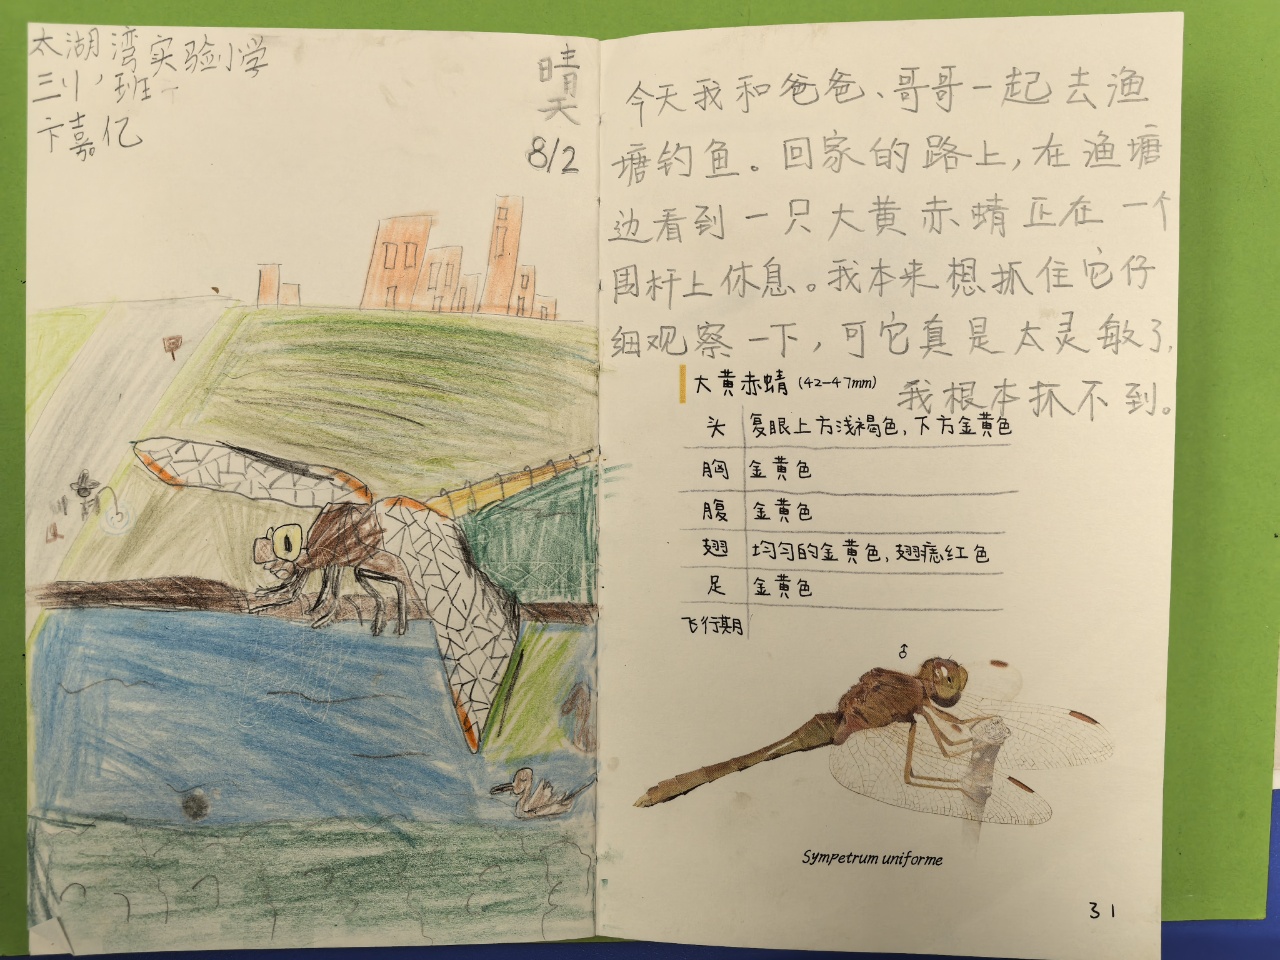 太湖湾实验小学
三1，班
卞嘉亿
晴
天
8/2
今天我和爸爸、哥哥一起去渔
塘钓鱼。回家的路上，在渔塘
边看到一只大黄赤蜻正在一个
围杆上休息。我本来想抓住它仔
细观察一下，可它真是太灵敏了，
我根本抓不到。
大黄赤蜻 (42-47mm)
头 复眼上方浅褐色，下方金黄色
胸 金黄色
腹 金黄色
翅 均匀的金黄色，翅痣红色
足 金黄色
飞行期
♂
Sympetrum uniforme
31